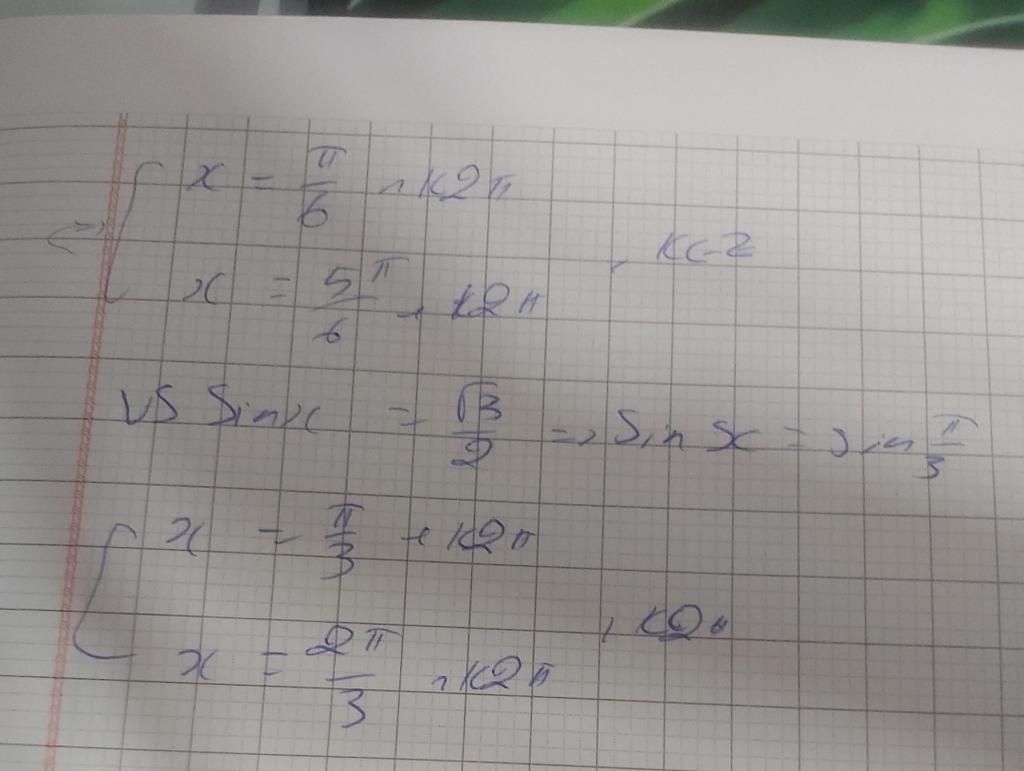 <=> { x = π/6 + k2π
x = 5π/6 + k2π , k ∈ Z
VS Sinx = √3/2 => Sin x = sin π/3
{ x = π/3 + k2π
x = 2π/3 + k2π , k2π